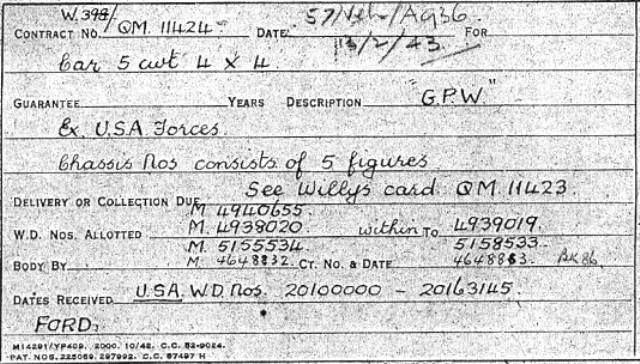 W. 398/ 57/Veh/A936.
CONTRACT NO. QM. 11424. DATE 13/2/43. FOR
Car 5 cwt 4 x 4.
GUARANTEE YEARS DESCRIPTION "G.P.W."
Ex. U.S.A. Forces.
Chassis Nos consists of 5 figures
See Willys card. QM 11423.
DELIVERY OR COLLECTION DUE
M 4940655.
W.D. NOS. ALLOTTED M. 4938020 within TO 4939019.
M. 5155534 5158533.
BODY BY M 4648832. CT. NO. & DATE 4648863.
DATES RECEIVED U.S.A. W.D. Nos. 20100000 - 20163145.
FORD.
M14291/YP409. 2000. 10/42. C.C. 52-9024.
PAT. NOS. 225069. 297992. C.C. 57497 H